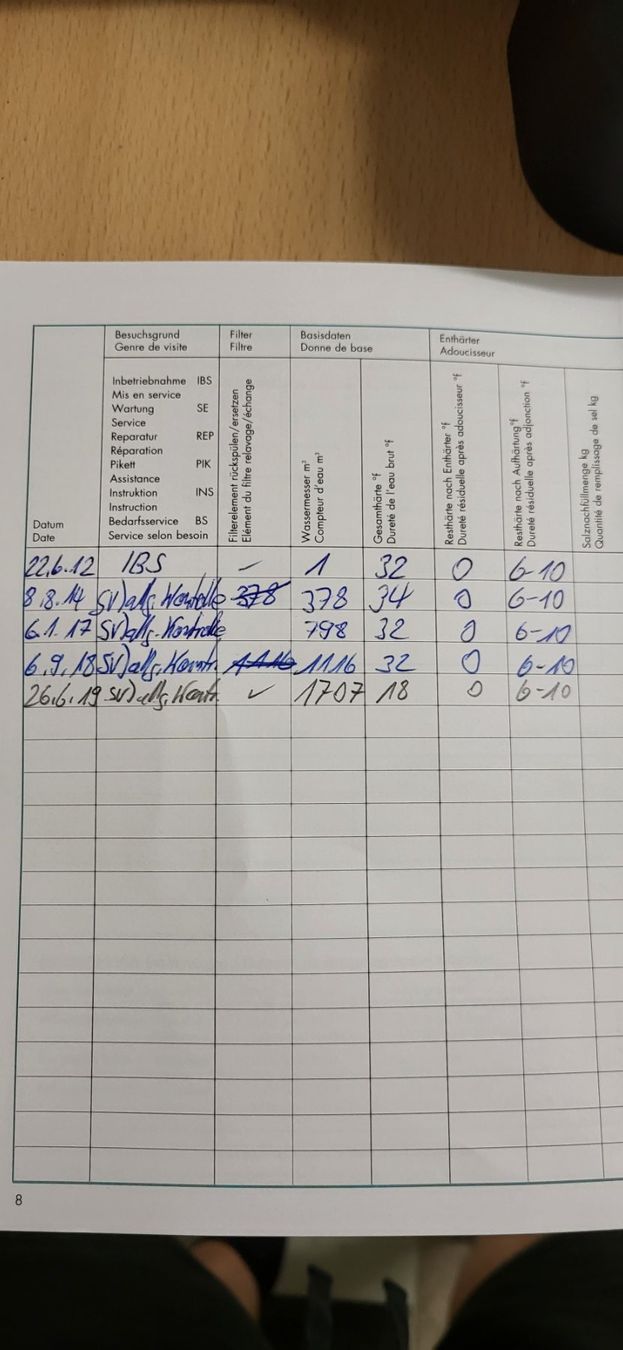 Besuchsgrund Filter Basisdaten Enthärter
Genre de visite Filtre Donne de base Adoucisseur
Inbetriebnahme IBS
Mis en service
Wartung SE
Service
Reparatur REP
Réparation
Pikett PIK
Assistance
Instruktion INS
Instruction
Bedarfsservice BS
Service selon besoin
Datum
Date
Filterelement rückspülen/ersetzen
Elément du filtre relavage/échange
Wassermesser m³
Compteur d'eau m³
Gesamthärte °f
Dureté de l'eau brut °f
Resthärte nach Enthärter °f
Dureté résiduelle après adoucisseur °f
Resthärte nach Aufhärtung °f
Dureté résiduelle après adjonction °f
Salznachfüllmenge kg
Quantité de remplissage de sel kg
22.6.12 IBS – 1 32 0 6-10
8.8.14 SV) allg. Kontrolle 378 378 34 0 6-10
6.1.17 SV) allg. Kontrolle 798 32 0 6-10
6.9.18 SV) allg. Kontr. 1116 1116 32 0 6-10
26.6.19 SV) allg. Kontr. ✓ 1707 18 0 6-10
8